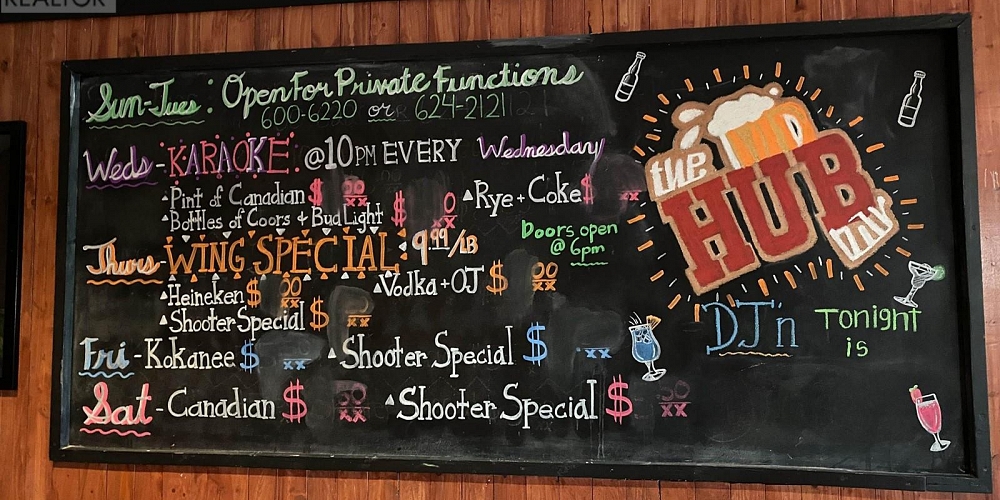 REALTOR
Sun-Tues: Open For Private Functions
600-6220 or 624-2121
Weds - KARAOKE @10PM EVERY Wednesday
Pint of Canadian $ 00 xx
Rye + Coke $ xx
Bottles of Coors + Bud Light $ 0 xx
Doors open
@ 6pm
Thurs - WING SPECIAL: 9.99/LB
Heineken $ 00 xx
Vodka + OJ $ 00 xx
Shooter Special $ xx
Fri - Kokanee $ xx Shooter Special $ xx
Sat - Canadian $ 50 xx Shooter Special $ 50 xx
the
HUB
DJ'n Tonight
is